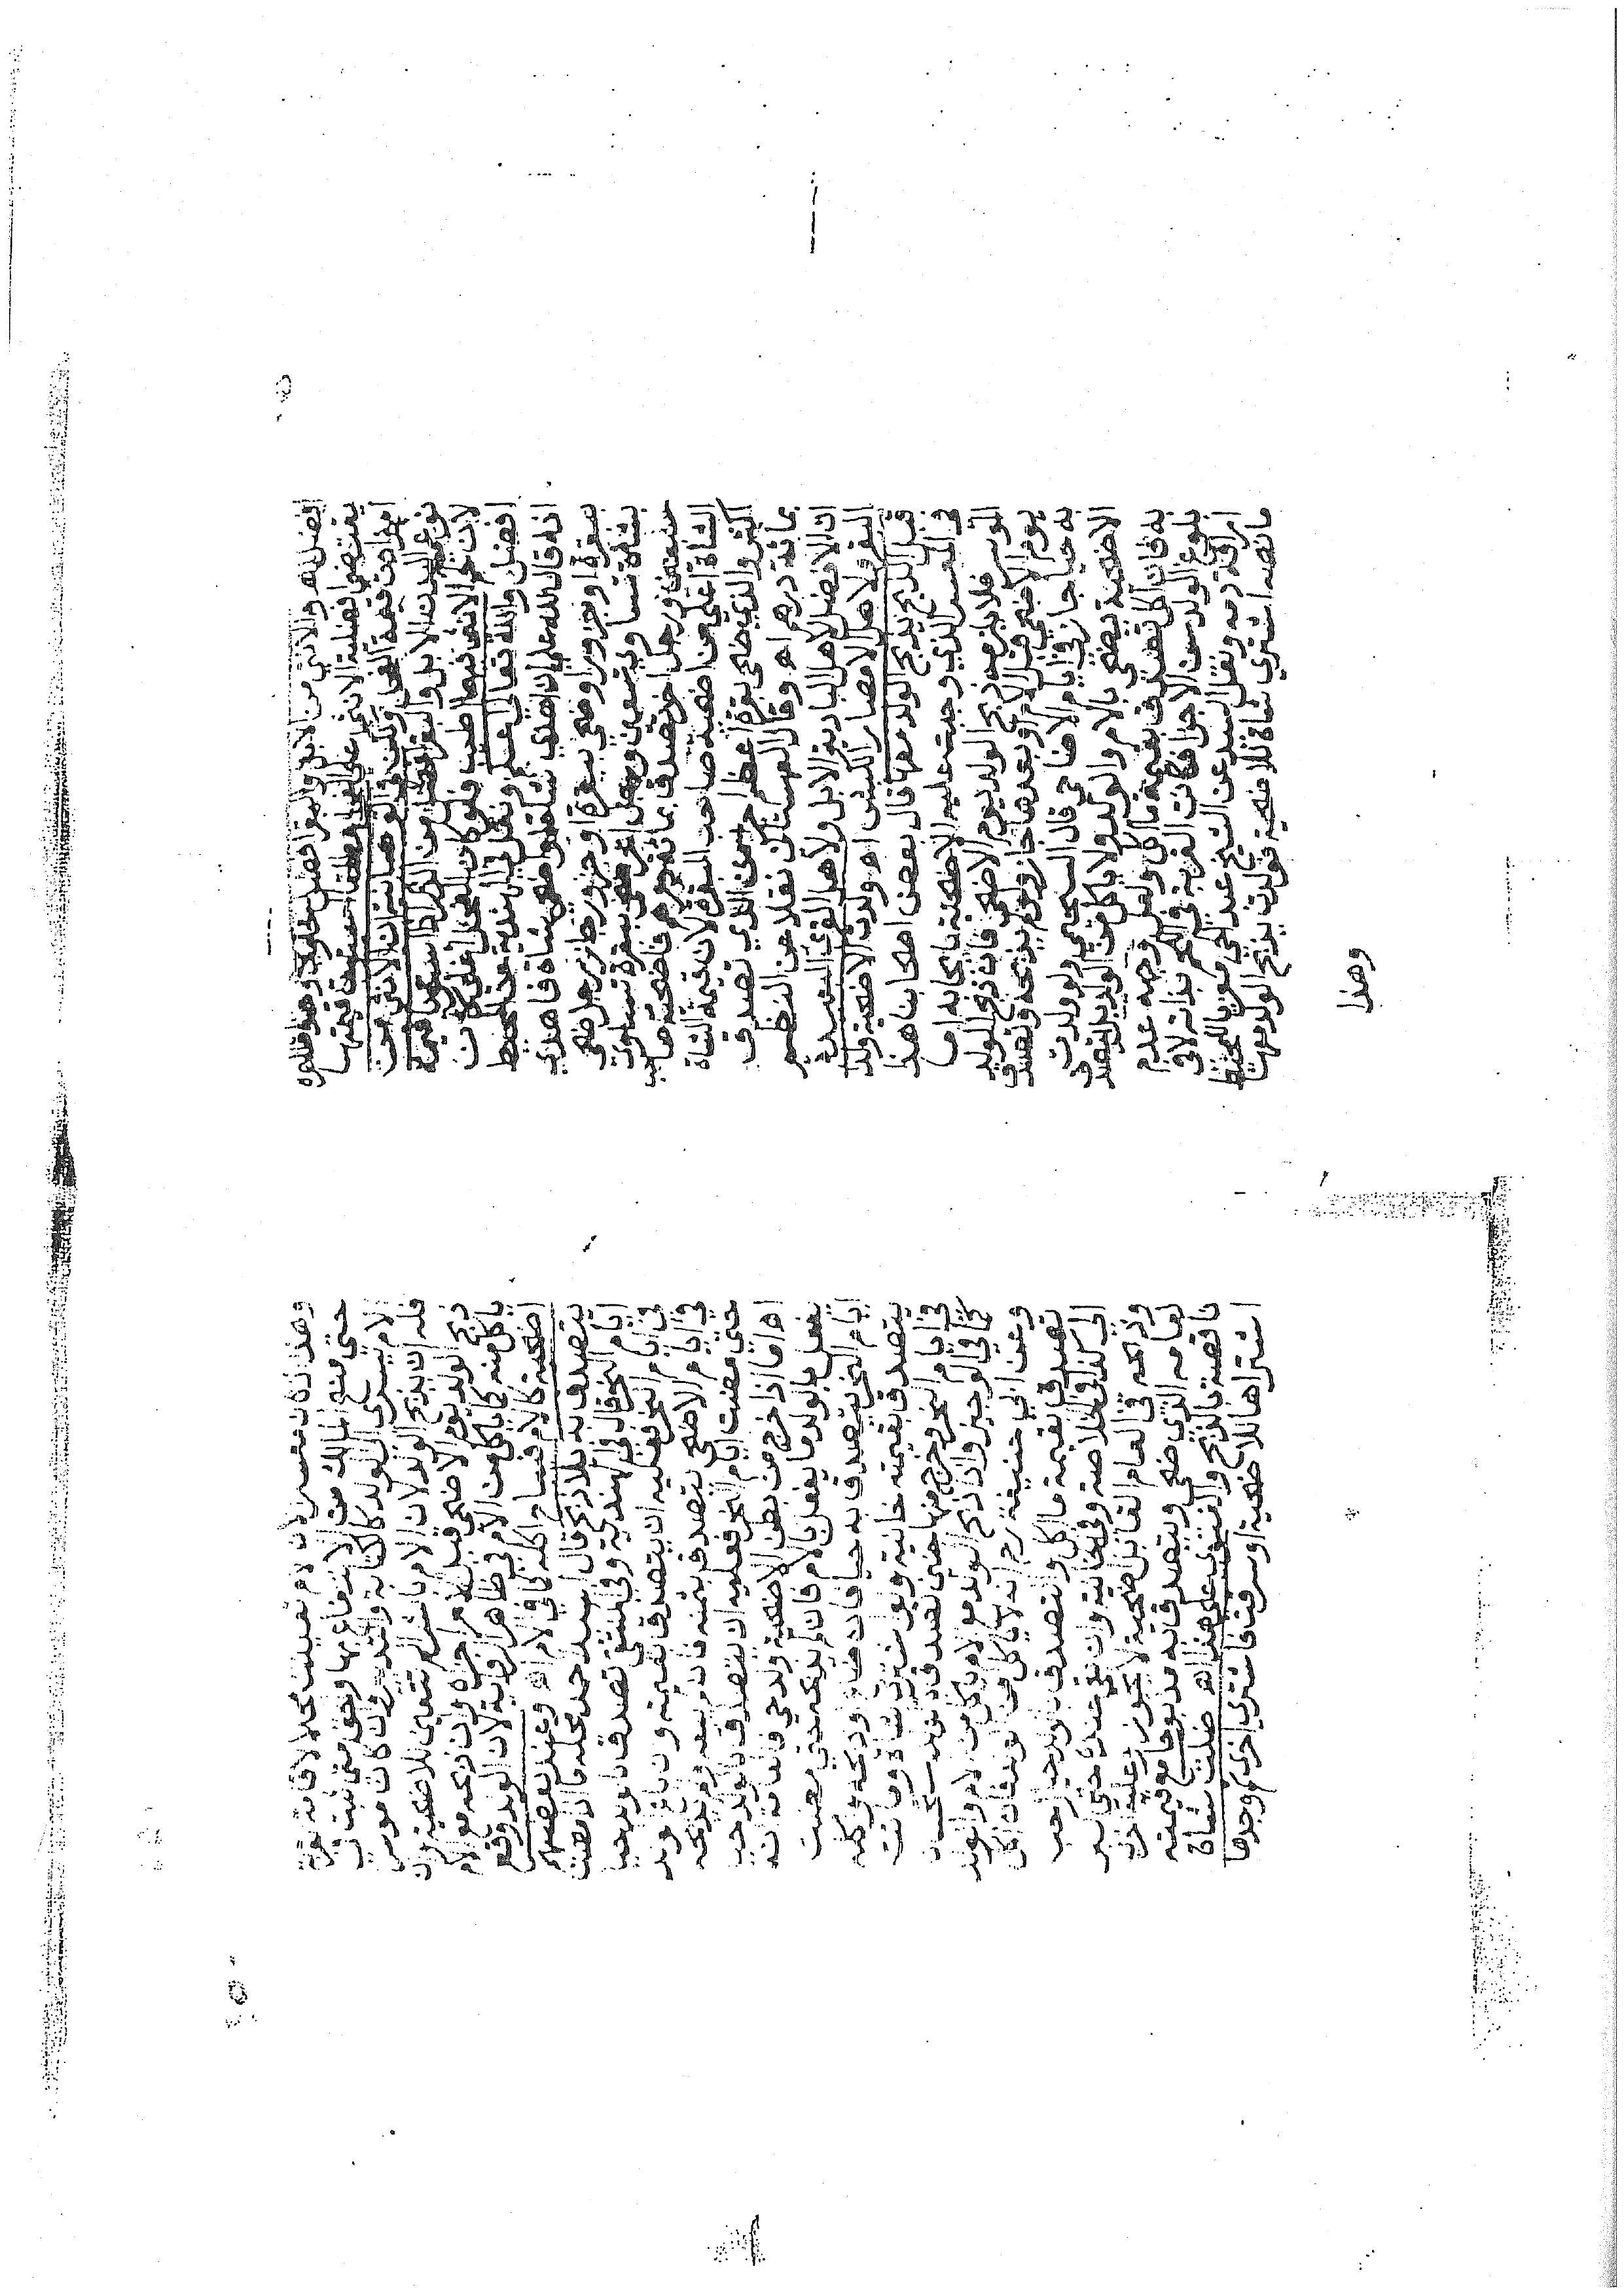 افضل له والانثى من الابل والبقر افضل حاوي وهو ظاهره
يقتضي تفضيلة الانثى على الفحل مطلقا استوت قيمتها
ام زادت قيمة الفحل ولكن في الوهبانية ان الانثى من
نوعي البدن الابل والبقر افضل من الذكر اذا استوت قيمة
لان لحم الانثى منهما اطيب فلو كان الفحل اغلى كان
افضل والله تعالى اعلم ونقل في الهندية عن المحيط
انه قال لله علي ان اهدي شاة فاهدى
ببقرة او بجزور او ضحى ببقرة او جزور جاز رجل ضحى
بشاة تساوي تسعين ورجل اخر ضحى ببقرة تساوي
سبعين ورجل اخر تصدق بمائة درهم فاضحية صاحب
الشاة اعلى من اضحية صاحب البقرة لان قيمة الشاة
اكثر والذي ضحى بقرة اعظم اجرا من الذي تصدق
بمائة درهم اه وقال القهستاني نقلا عن النظم
ان الافضل لاهل البادية الابل ولاهل القرى
البقر ولاهل الامصار الكبش اه ولدت الاضحية ولدا
قبل الذبح يذبح الولد معها قال بعض اصحابنا هذا
في المعسر الذي وجبت عليه الاضحية بايجابه اما
الموسر فلا يلزمه ذبح الولد يوم الاضحى فان ذبح الولد
يوم الاضحى قبل الام او بعدها جاز ولو لم يذبحه وتصدق
به حيا جاز في ايام الاضاحي قال ولو ولدت
الاضحية يضحي بالام والولد ولا ياكل من الولد بل يتصدق
به فان اكل تصدق بقيمة ما اكل ولعل وجهه عدم
بلوغ الولد سن الاجزا فكانت القربة في اللحم بذاته لا في
اراقة دمه ونقل السيد عن الشيخ عبد الحي معزيا للمحيط
ما نصه اشترى شاة للاضحية فولدت يذبح الولد معها
وهذا
وهذا اذا كان معسرا لان الام تعينت محلا لاقامة القربة
حتى منع المالك من الانتفاع بها وحق متى ثبت في
الام يسري الى الولد كالكتابة والتدبير وان كان موسرا
فله ان يذبح الولد لان الام بالشرا لم تتعين للاضحية وان
ذبح الولد يوم الاضحى قبل الام اجزاه وان ذبحه مع الام
ياكل منه كما ياكل من الام في ظاهر الرواية لان الولد وقع
اضحية كالام فيباح اكله كما في الام اه وعند بعضهم
يتصدق به بلا ذبح قال السيد حمد محله ما اذا مضت
ايام النحر قال في الهندية وفي المنتقى تصدق بالولد حيا
في ايام النحر فعليه ان يتصدق بقيمته وان باع الولد
في ايام الاضحى يتصدق بثمنه فان لم يبعه ولم يذبحه
حتى مضت ايام النحر فعليه ان يتصدق بالولد حيا
اه اما اذا خرج من بطن الاضحية ولد حي فالعامة انه
يفعل بالولد ما يفعل بالام فان لم يذبحه حتى مضت
ايام النحر يتصدق به حيا فان ضاع وذبحه واكله
يتصدق بقيمته خانية ولو سرق شاة وماتت
في ايام النحر وخرج منها حتى تصدق
كما في الوجيز واذا ذبح الولد مع الام ياكل من الام والولد
وعن ابي حنيفة رح انه لا ياكل من الولد فان اكل
تصدق بقيمة ما اكل والتصدق بالولد حيا احب
الي كذا في الخلاصة وفي الخانية وان بقي عنده حتى كبر
وذبحه في العام القابل اضحية لا يجوز وعليه اخرى
لعامه الذي ضحى ويتصدق به مذبوحا مع قيمته
ناقصة بالذبح والفتوى على هذا اه ضلت شاة
اشتراها للاضحية او سرقت فاشترى اخرى ثم وجدها